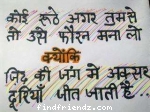 कोई रूठे अगर तुमसे
तो इसे फौरन मना लो
क्योंकि
जिद्द की जंग मे अक्सर
दूरियाँ जीत जाती है...
findfriendz.com